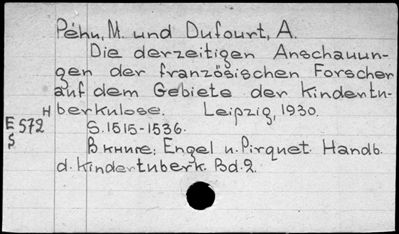 Péhu, M. und Dufourt, A.
Die derzeitigen Anschauun-
gen der französischen Forscher
auf dem Gebiete der Kindertu-
berkulose. Leipzig, 1930.
H
E 572
S.1515-1536.
Ş
В книге: Engel u. Pirquet. Handb.
d. Kindertuberk. Bd. 2.